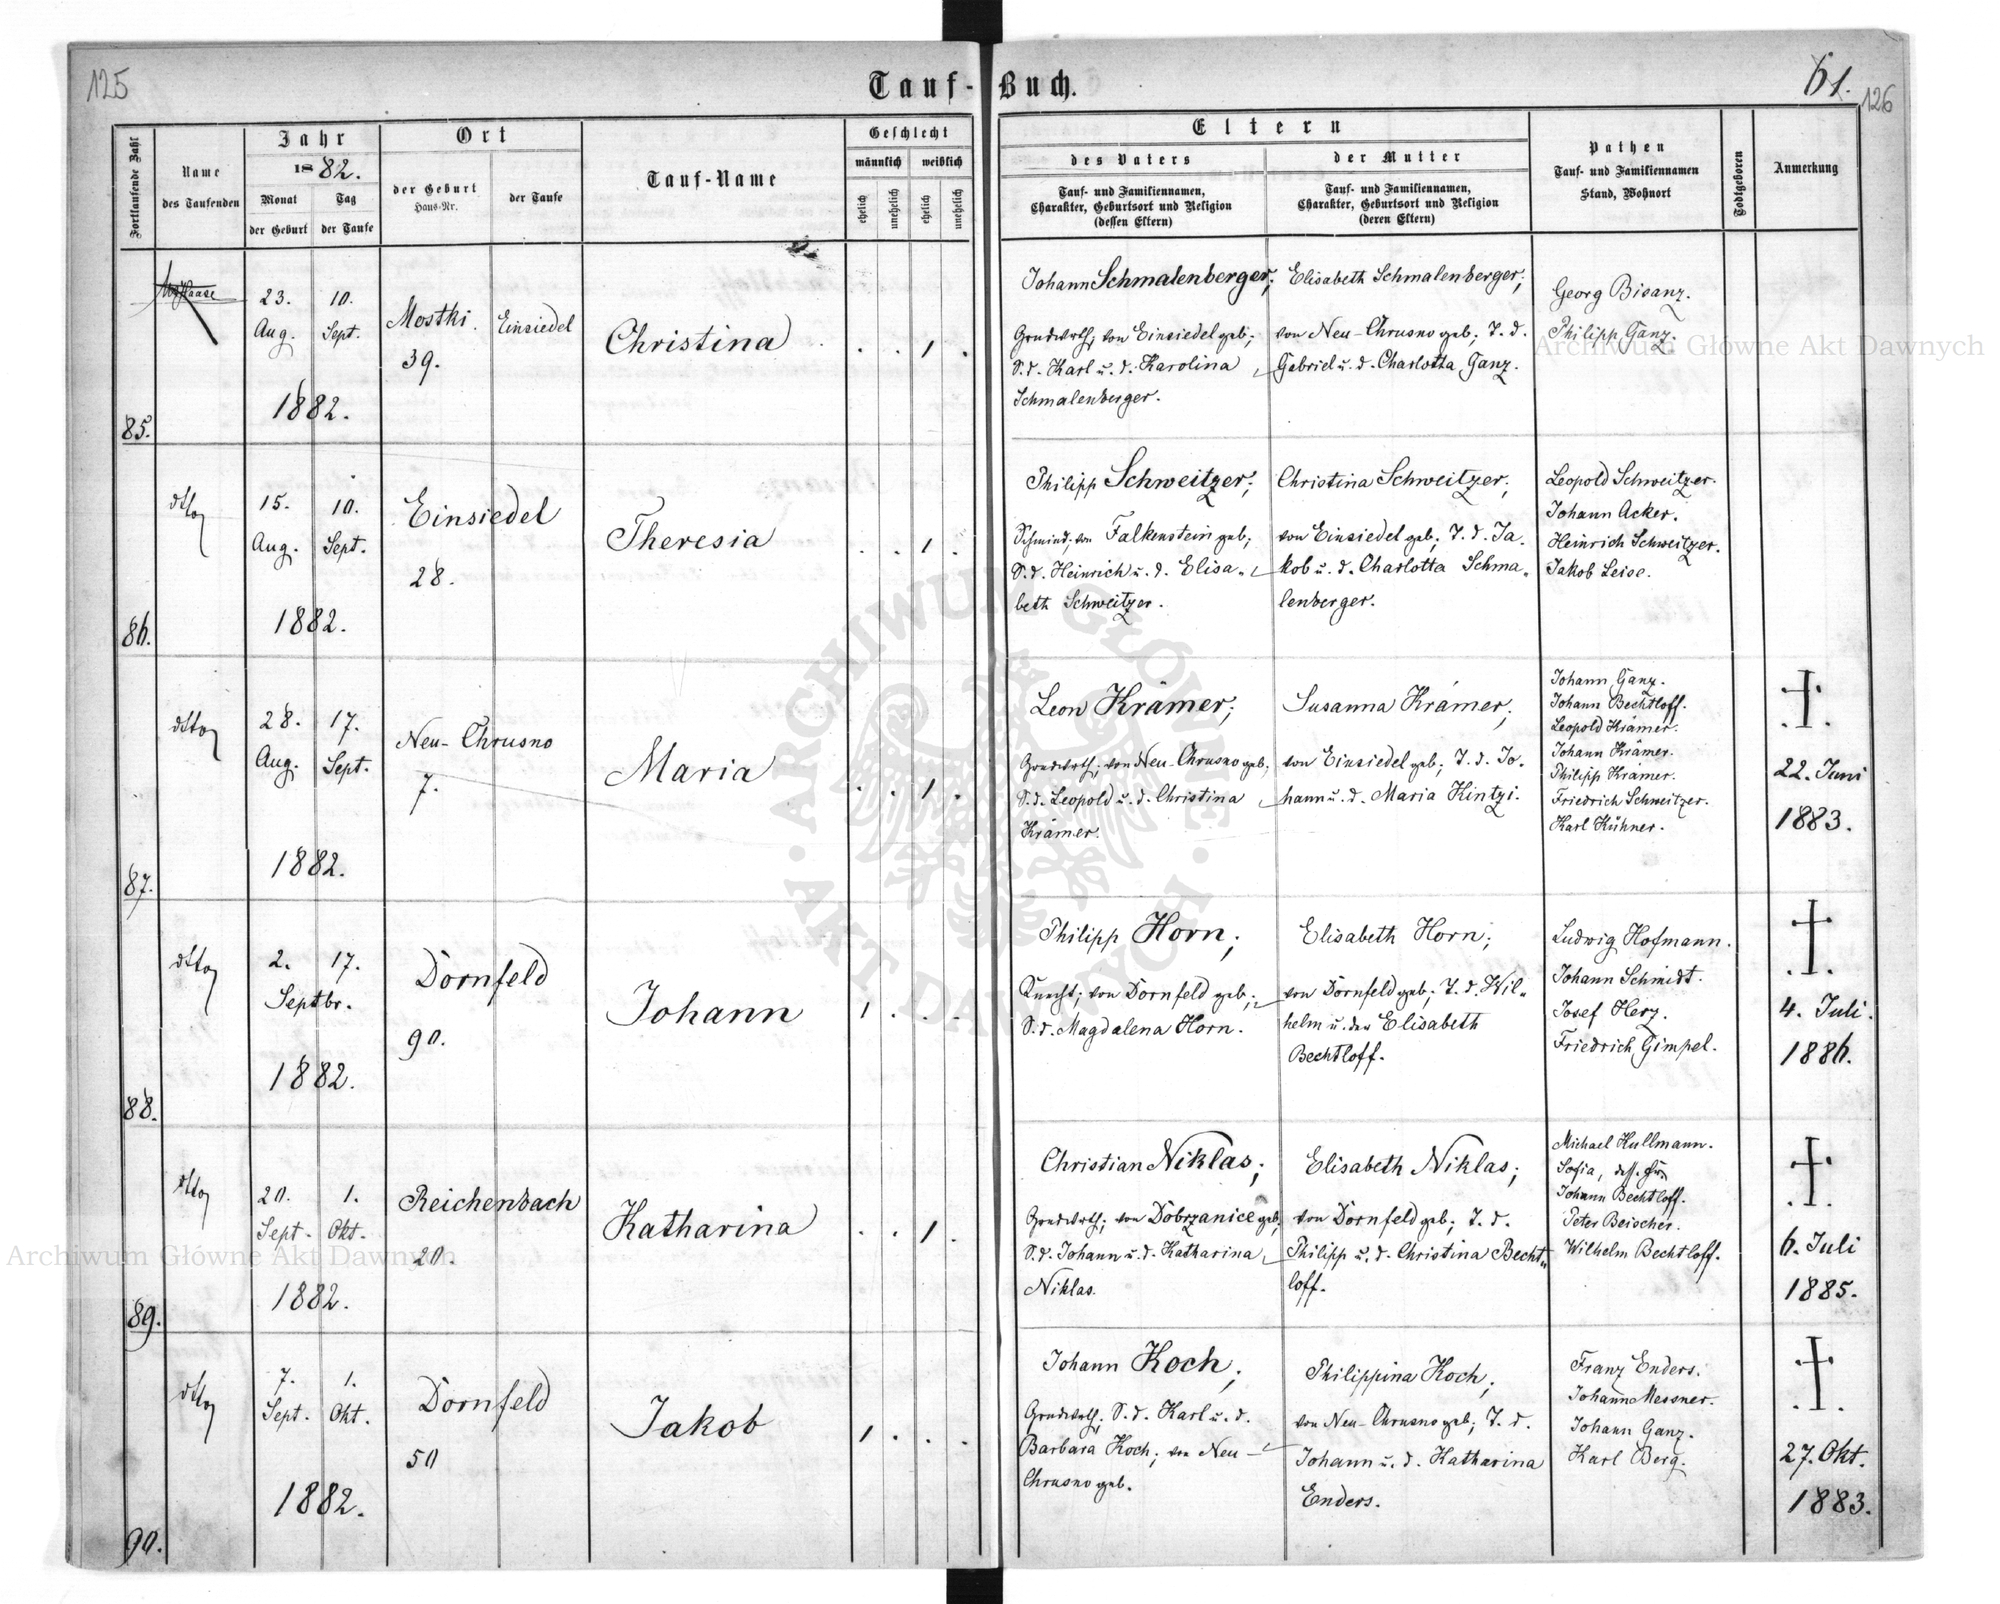 125
Tauf-Buch.
61.
126
Fortlaufende Zahl
Name
des Taufenden
Jahr
1882.
Monat
der Geburt
Tag
der Taufe
Ort
der Geburt
Haus-Nr.
der Taufe
Tauf-Name
Geschlecht
männlich
weiblich
ehelich
unehelich
ehelich
unehelich
Eltern
des Vaters
Tauf- und Familiennamen,
Charakter, Geburtsort und Religion
(dessen Eltern)
der Mutter
Tauf- und Familiennamen,
Charakter, Geburtsort und Religion
(deren Eltern)
Pathen
Tauf- und Familiennamen
Stand, Wohnort
Todtgeboren
Anmerkung
85.
23.
Aug.
10.
Sept.
1882.
Mostki.
39.
Einsiedel
Christina
. . 1 .
Johann Schmalenberger;
Grundwrth; von Einsiedel geb;
S. d. Karl u. d. Karolina
Schmalenberger.
Elisabeth Schmalenberger;
von Neu-Chrusno geb; T. d.
Gabriel u. d. Charlotta Ganz.
Georg Bisanz.
Philipp Ganz.
86.
dtto
15.
Aug.
10.
Sept.
1882.
Einsiedel
28.
Theresia
. . 1 .
Philipp Schweitzer;
Schmied; von Falkenstein geb;
S. d. Heinrich u. d. Elisa-
beth Schweitzer.
Christina Schweitzer;
von Einsiedel geb; T. d. Ja-
kob u. d. Charlotta Schma-
lenberger.
Leopold Schweitzer.
Johann Acker.
Heinrich Schweitzer.
Jakob Leise.
87.
dtto
28.
Aug.
17.
Sept.
1882.
Neu-Chrusno
7.
Maria
. . 1 .
Leon Krämer;
Grundwrth; von Neu-Chrusno geb;
S. d. Leopold u. d. Christina
Krämer.
Susanna Krämer;
von Einsiedel geb; T. d. Jo-
hann u. d. Maria Kintzi.
Johann Ganz.
Johann Bechtloff.
Leopold Krämer.
Johann Krämer.
Philipp Krämer.
Friedrich Schweitzer.
Karl Kühner.
22. Juni
1883.
88.
dtto
2.
17.
Septbr.
1882.
Dornfeld
90.
Johann
1 . . .
Philipp Horn;
Knecht; von Dornfeld geb;
S. d. Magdalena Horn.
Elisabeth Horn;
von Dornfeld geb; T. d. Wil-
helm u. der Elisabeth
Bechtloff.
Ludwig Hofmann.
Johann Schmidt.
Josef Herz.
Friedrich Gimpel.
4. Juli.
1886.
89.
dtto
20.
Sept.
1.
Okt.
1882.
Reichenbach
20.
Katharina
. . 1 .
Christian Niklas;
Grundwrth; von Dobrzanice geb;
S. d. Johann u. d. Katharina
Niklas.
Elisabeth Niklas;
von Dornfeld geb; T. d.
Philipp u. d. Christina Becht-
loff.
Michael Kullmann.
Sofia,
Johann Bechtloff.
Peter Beischer.
Wilhelm Bechtloff.
6. Juli
1885.
90.
dtto
7.
Sept.
1.
Okt.
1882.
Dornfeld
50
Jakob
1 . . .
Johann Koch;
Grundwrth; S. d. Karl u. d.
Barbara Koch; von Neu-
Chrusno geb.
Philippina Koch;
von Neu-Chrusno geb; T. d.
Johann u. d. Katharina
Enders.
Franz Enders.
Johann Messner.
Johann Ganz.
Karl Berg.
27. Okt.
1883.
Archiwum Główne Akt Dawnych
Archiwum Główne Akt Dawnych
ARCHIWUM GŁÓWNE · AKT DAWNYCH ·